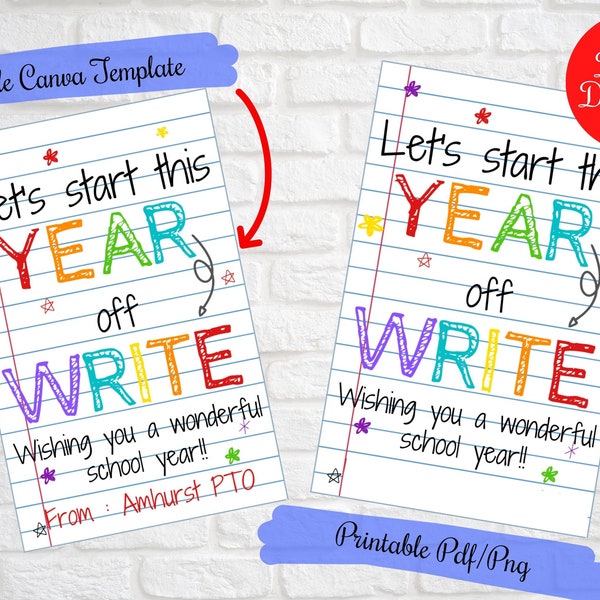 Canva Template
Let's start this
YEAR
off
WRITE
Wishing you a wonderful
school year!!
From : Amhurst PTO
Let's start
YEAR
off
WRITE
Wishing you a wonderful
school year!!
Printable Pdf/Png